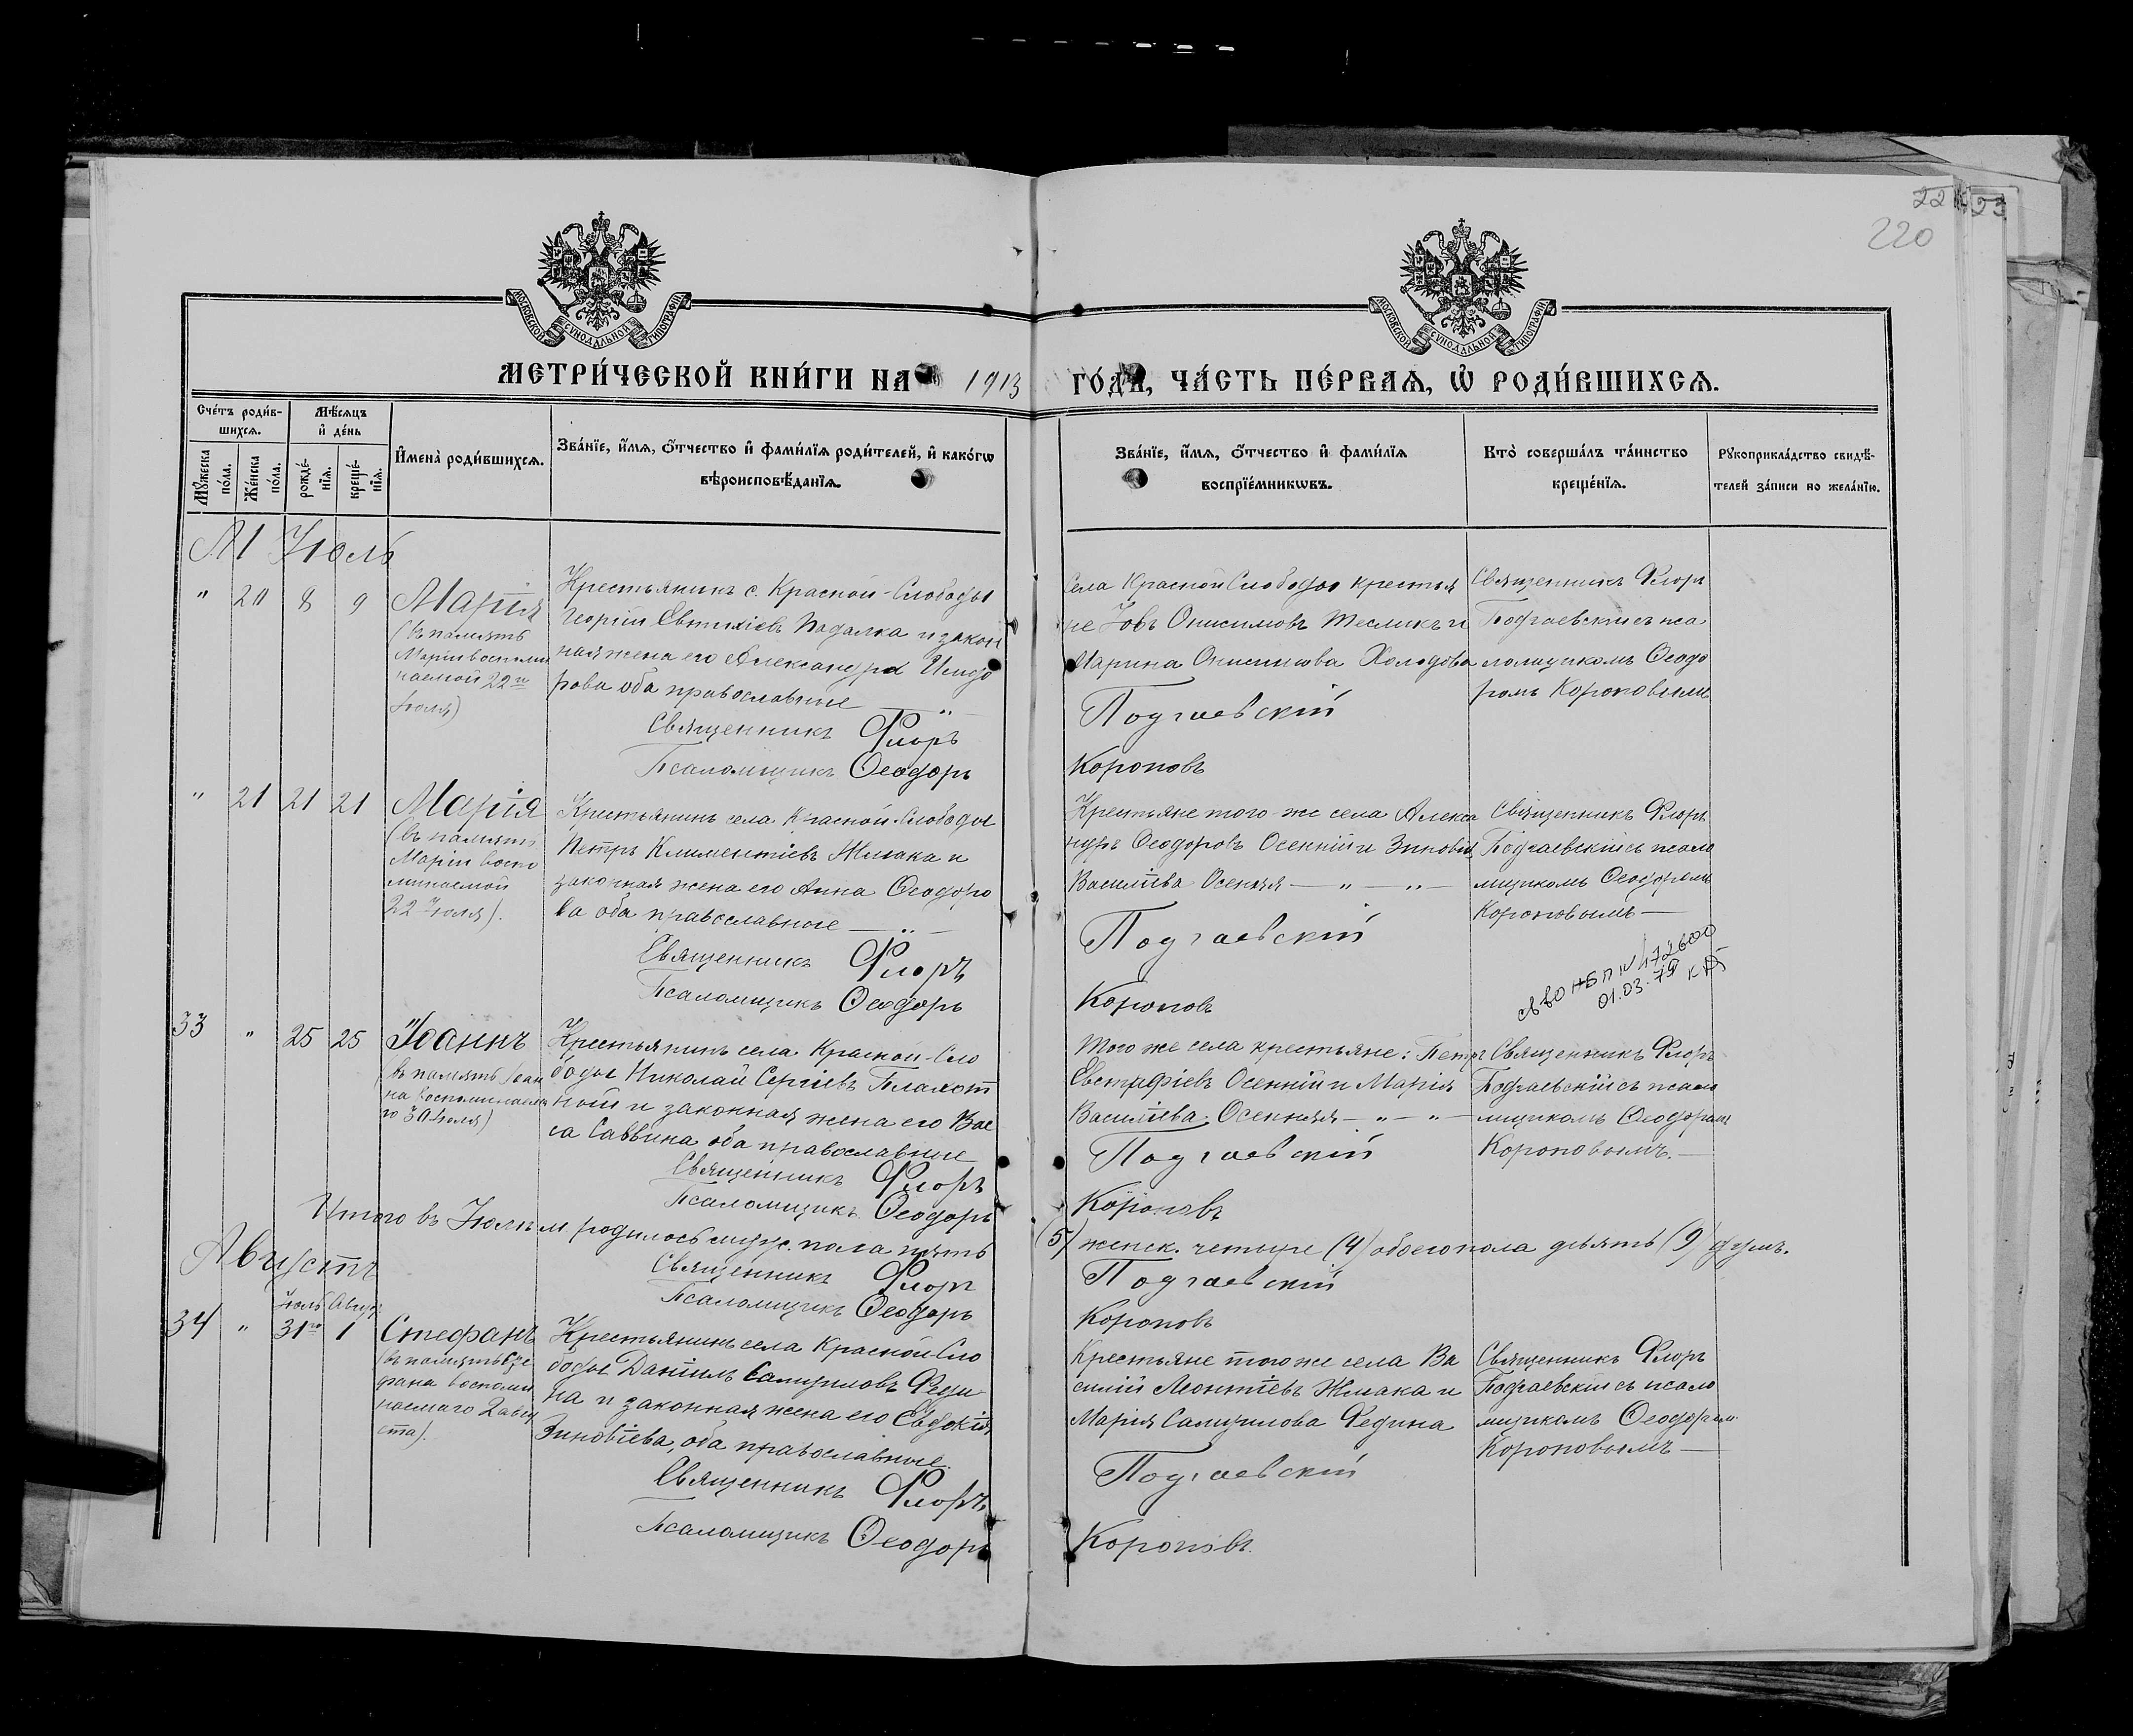 22 23
220
МОСКОВСКОЙ СѴНОДАЛЬНОЙ ТИПОГРАФІИ
МОСКОВСКОЙ СѴНОДАЛЬНОЙ ТИПОГРАФІИ
МЕТРИ́ЧЕСКОЙ КНИ́ГИ НА 1913 ГО́ДА, ЧА́СТЬ ПЕ́РВАѦ, Ѡ҆ РОДИ́ВШИХСѦ.
Сче́тъ роди́в-
шихсѧ.
Мѣ́сѧцъ
и҆ де́нь
Мꙋ́жеска
по́ла.
Же́нска
по́ла.
рожде́-
нїѧ.
креще́-
нїѧ.
И҆мена̀ роди́вшихсѧ.
Зва́нїе, и҆́мѧ, ѻ҆́тчество и҆ фами́лїѧ роди́телей, и҆ како́гѡ
вѣроисповѣ́данїѧ.
Зва́нїе, и҆́мѧ, ѻ҆́тчество и҆ фами́лїѧ
воспрїе́мникѡвъ.
Кто̀ соверша́лъ та́инство
креще́нїѧ.
Рꙋкоприкла́дство свидѣ́-
телей за́писи по жела́нїю.
М Іюль
" 20 8 9 Марія
(въ память
Маріи воспоми
наемой 22го
Іюля)
Крестьянинъ с. Красной-Слободы
Георгій Евтихіевъ Падалка и закон
ная жена его Александра Исидо
рова оба православные — " —
Священникъ Флоръ
Псаломщикъ Ѳеодоръ
Села Красной Слободы крестья
не Іовъ Онисимовъ Теслик и
Марина Онисимова Холодова
Подгаевскій
Короповъ
Священникъ Флоръ
Подгаевскій съ пса
ломщикомъ Ѳеодо
ромъ Короповымъ
" 21 21 21 Марія
(въ память
Маріи воспо
минаемой
22 Іюля).
Крестьянинъ села Красной-Слободы
Петръ Климентіевъ Жмака и
законная жена его Анна Ѳеодоро
ва оба православные — " —
Священникъ Флоръ
Псаломщикъ Ѳеодоръ
Крестьяне того-же села Алекса
ндръ Ѳеодоровъ Осенній и Зиновія
Василіева Осенняя — " — " —
Подгаевскій
Короповъ
Священникъ Флоръ
Подгаевскій съ псало
мщикомъ Ѳеодоромъ
Короповымъ —
01.03.79
33 " 25 25 Іоаннъ
(въ память Іоан
на воспоминаема
го 30 Іюля)
Крестьянинъ села Красной-Сло
боды Николай Сергіевъ Плахот
ный и законная жена его Вас
са Саввина оба православные
Священникъ Флоръ
Псаломщикъ Ѳеодоръ
Того же села крестьяне: Петръ
Евстафіевъ Осенній и Марія
Василіева Осенняя — " — " —
Подгаевскій
Короповъ
Священникъ Флоръ
Подгаевскій съ псало
мщикомъ Ѳеодоромъ
Короповымъ. —
Итого въ Іюлѣ м родилось муж. пола пять (5) женск. четыре (4) обоего пола девять (9) душъ.
Священникъ Флоръ Подгаевскій
Псаломщикъ Ѳеодоръ Короповъ
Августъ
Іюль Авгус.
34 " 31го 1 Стефанъ
(въ память Сте
фана воспоми
наемаго 2 авгу
ста).
Крестьянинъ села Красной Сло
боды Даніилъ Самуиловъ Феди
на и законная жена его Евдокія
Зиновіева, оба православные.
Священникъ Флоръ
Псаломщикъ Ѳеодоръ
Крестьяне того же села Ва
силій Леонтіевъ Жмака и
Марія Самуилова Федина
Подгаевскій
Короповъ.
Священникъ Флоръ
Подгаевскій съ псало
мщикомъ Ѳеодором
Короповымъ —